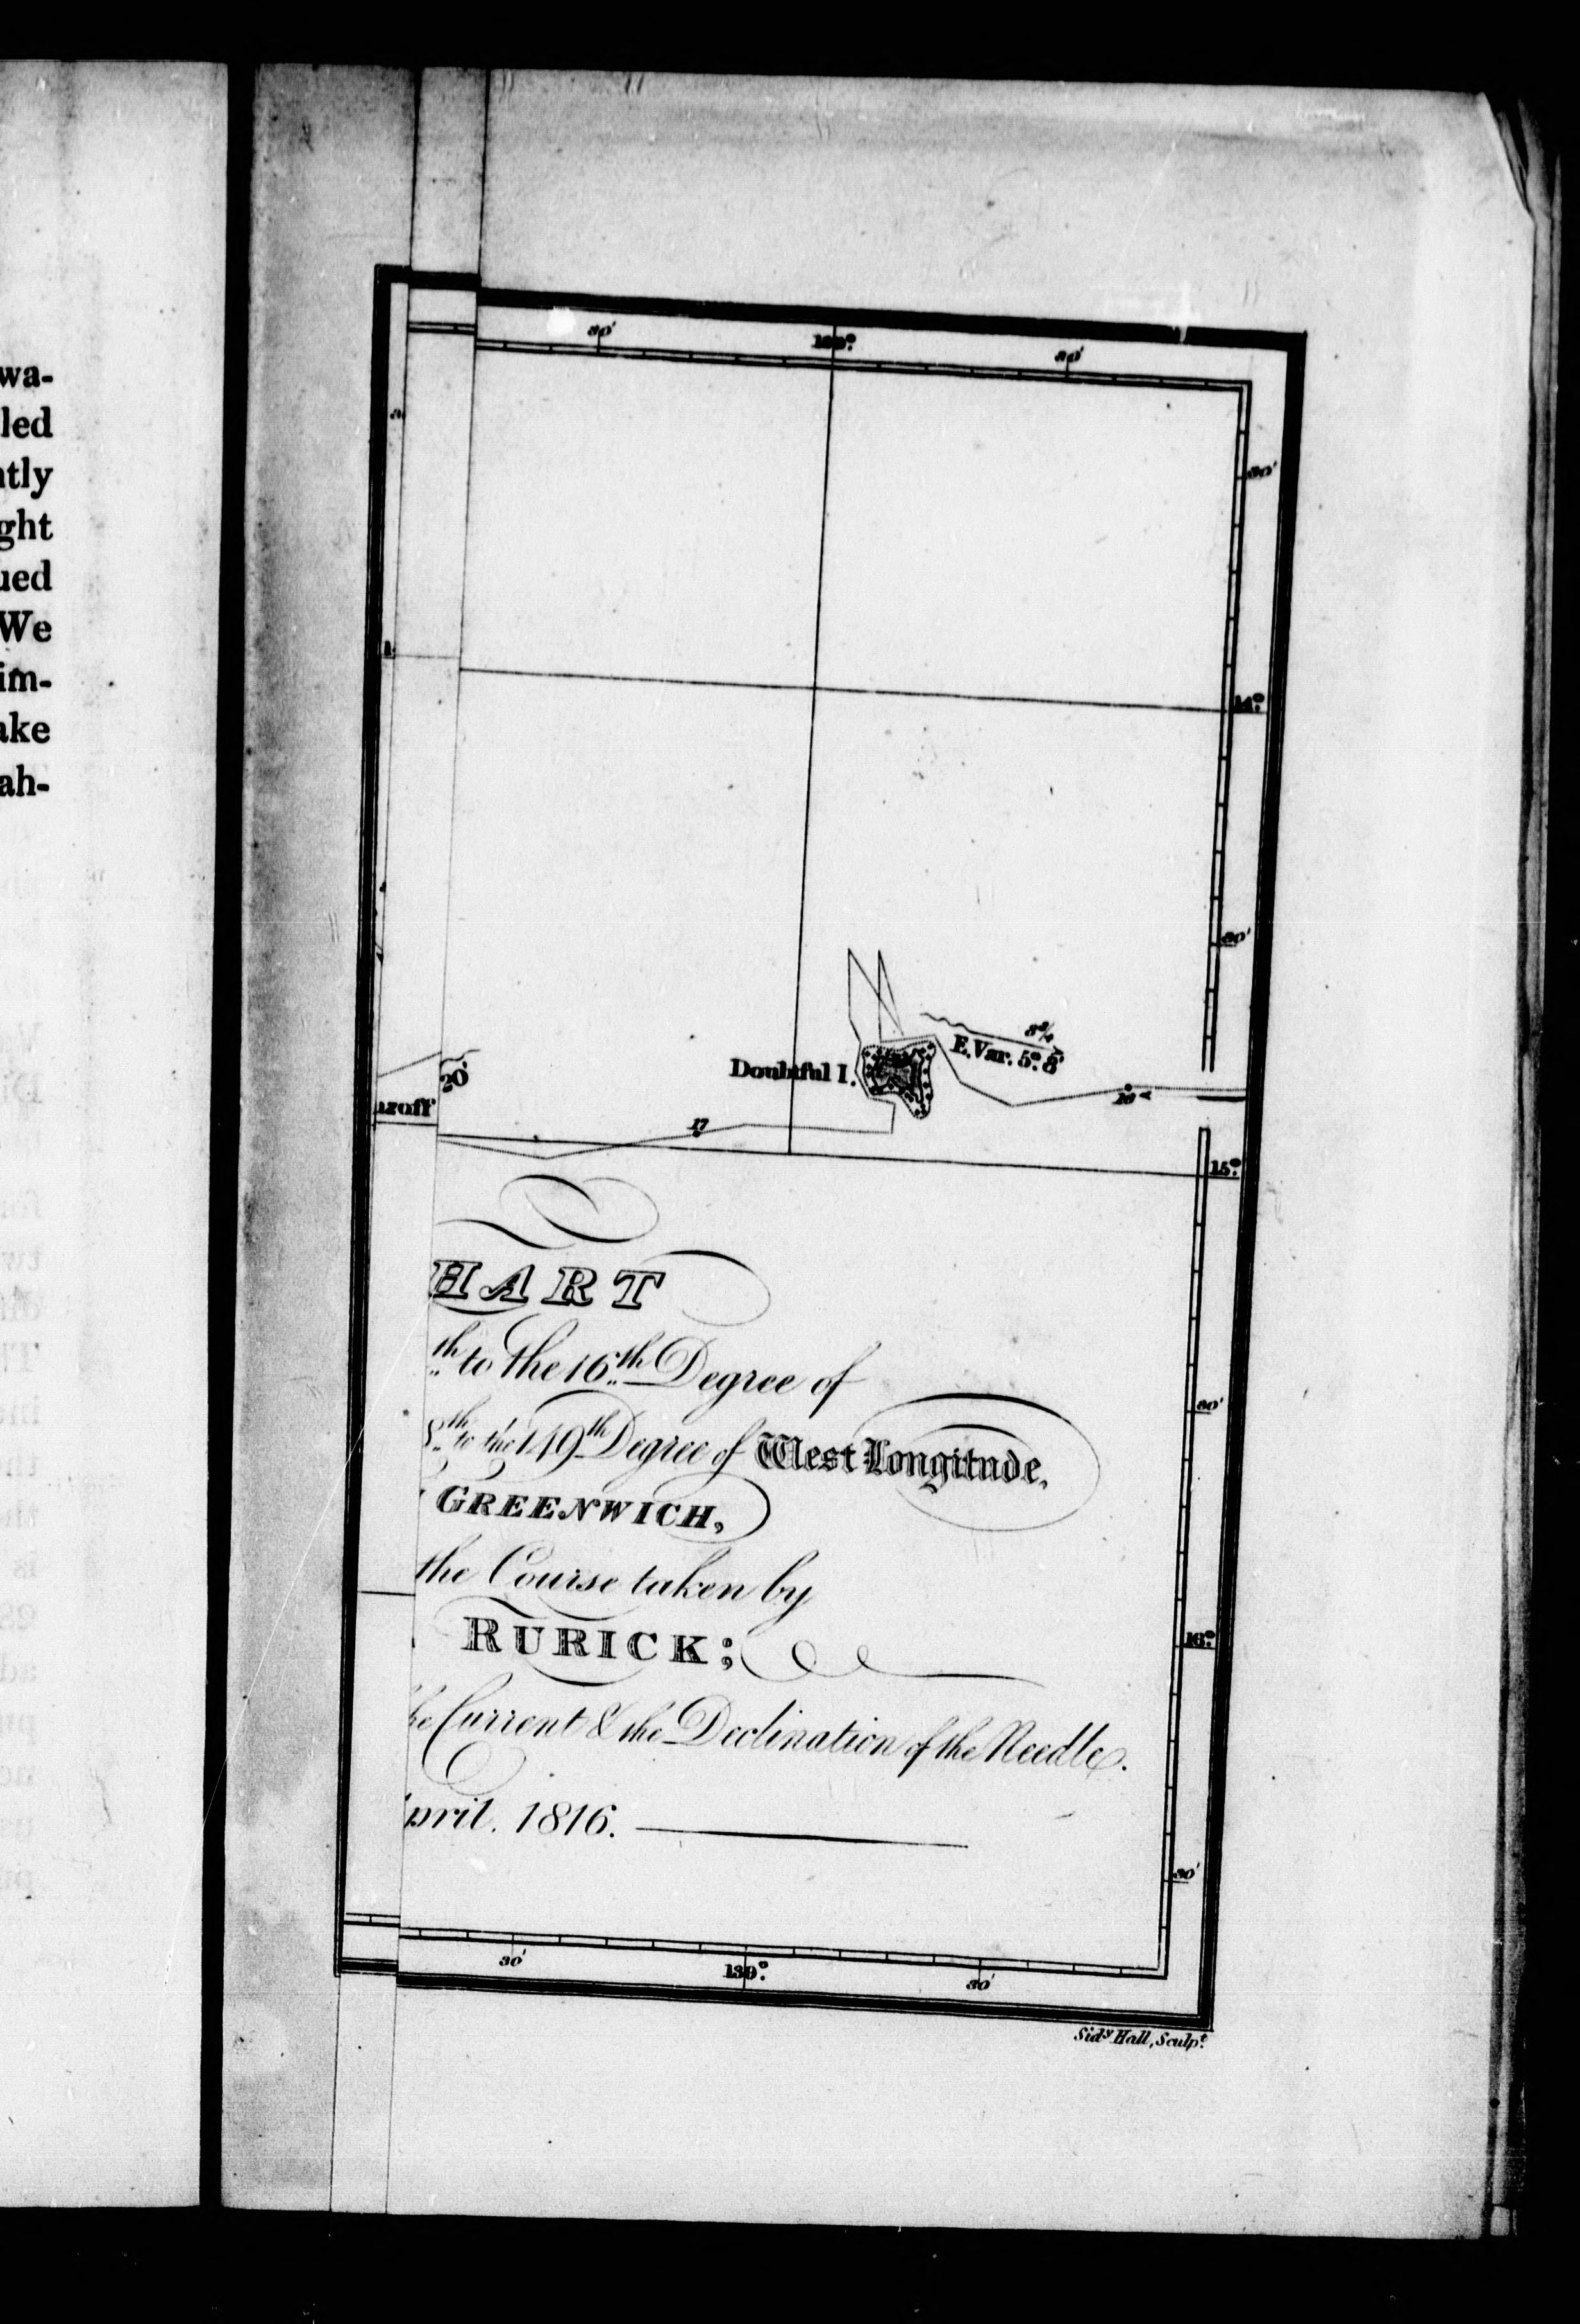 wa-
led
ntly
ght
ued
We
im-
ake
ah-
30'
139°.
30'
30'
14°.
30'
3¾
E.Var. 5°. 8'
Doubtful I.
20'
aroff
17
15°.
HART
th to the 16th Degree of
th to the 149th Degree of West Longitude,
GREENWICH,
30'
the Course taken by
RURICK;
16°.
he Current & the Declination of the Needle.
pril. 1816.
30'
30'
139°.
30'
Sidy. Hall, Sculpt.